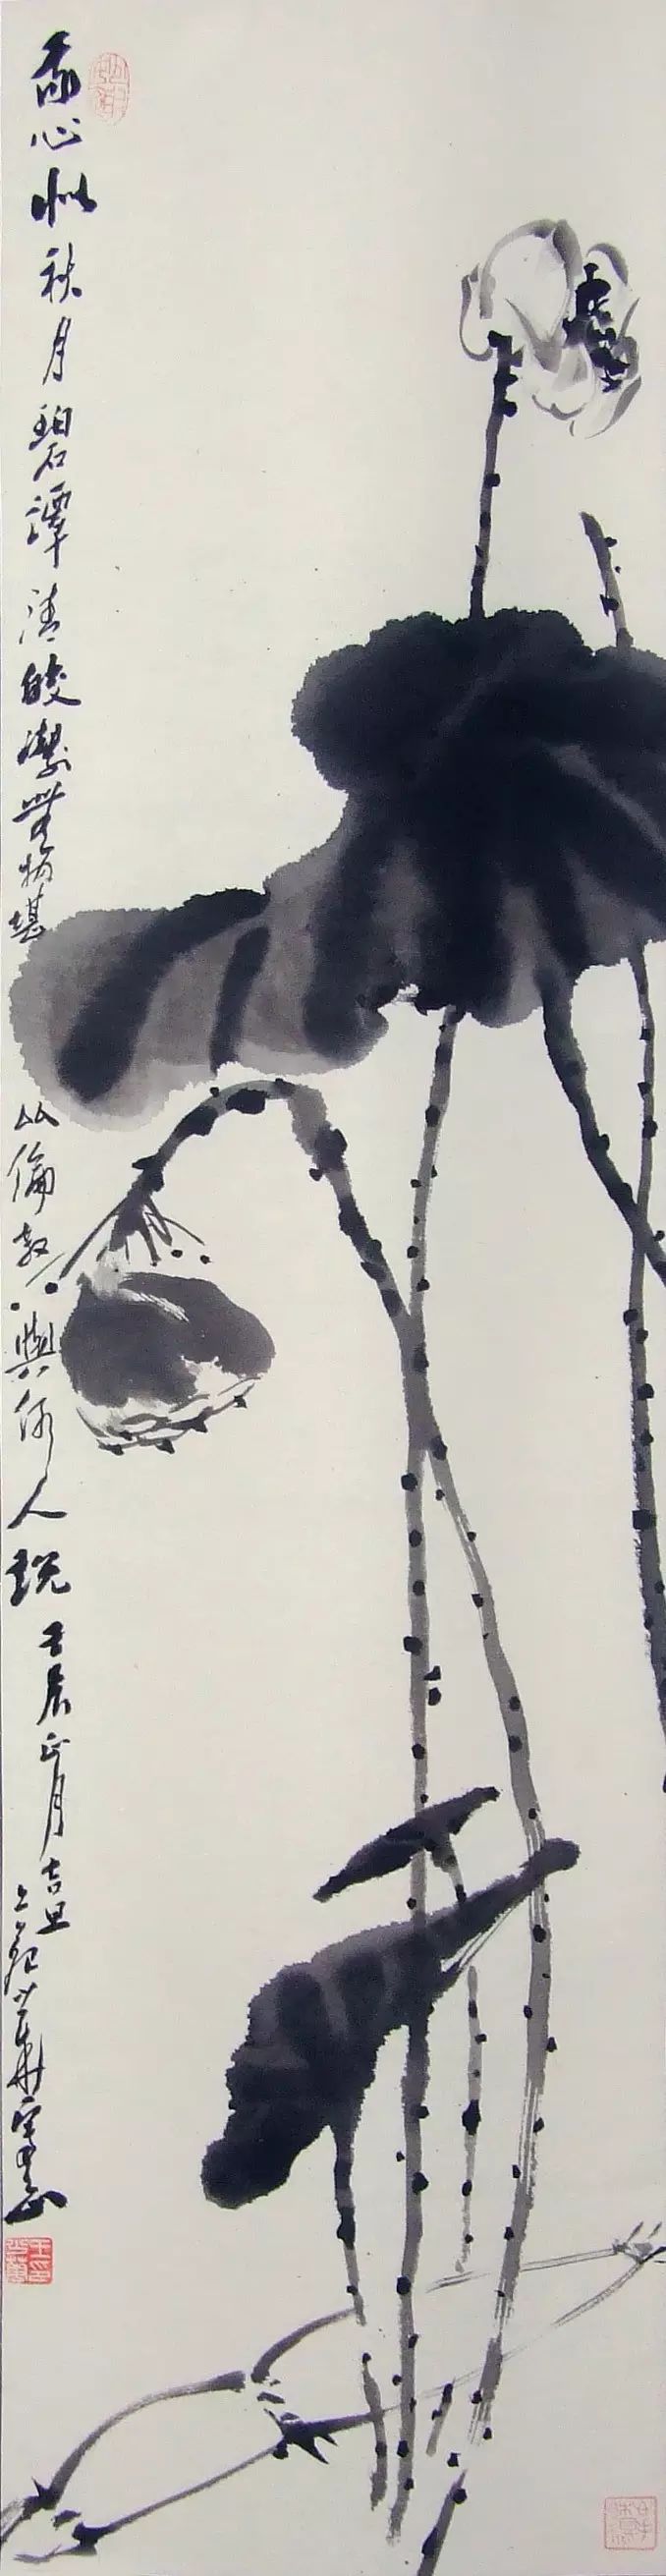 吾心似秋月碧潭清皎潔無物堪比倫教與何人說
壬辰正月吉旦
寫